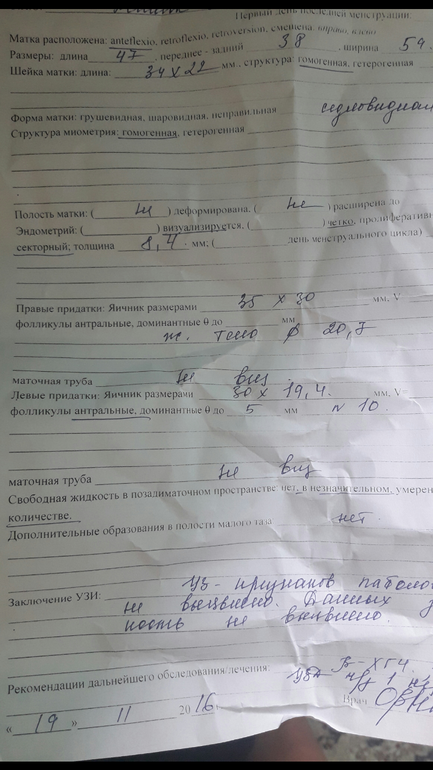 Первый день последней менструации:
Матка расположена: anteflexio, retroflexio, retroversion, смещена: вправо, влево
Размеры: длина 47, переднее - задний 38, ширина 54.
Шейка матки: длина: 34 х 22 мм, структура: гомогенная, гетерогенная
Форма матки: грушевидная, шаровидная, неправильная седловидная
Структура миометрия: гомогенная, гетерогенная
Полость матки: ( не ) деформирована; ( не ) расширена до
Эндометрий: ( ) визуализируется, ( ) четко, пролифератив
секторный; толщина 8,4 мм; ( день менструального цикла)
Правые придатки: Яичник размерами 35 х 30 мм, V
фолликулы антральные, доминантные θ до мм
ж. тело 20,7
маточная труба не виз
Левые придатки: Яичник размерами 30 х 19,4. мм, V
фолликулы антральные, доминантные θ до 5 мм N 10.
маточная труба не виз
Свободная жидкость в позадиматочном пространстве: нет, в незначительном, умерен
количестве.
Дополнительные образования в полости малого таза нет.
Заключение УЗИ: УЗ - признаков патоло
не выявлено. Данных
ность не выявлено.
β - ХГЧ.
Рекомендации дальнейшего обследования/лечения: УЗИ ч/з 1
« 19 » 11 2016 Врач